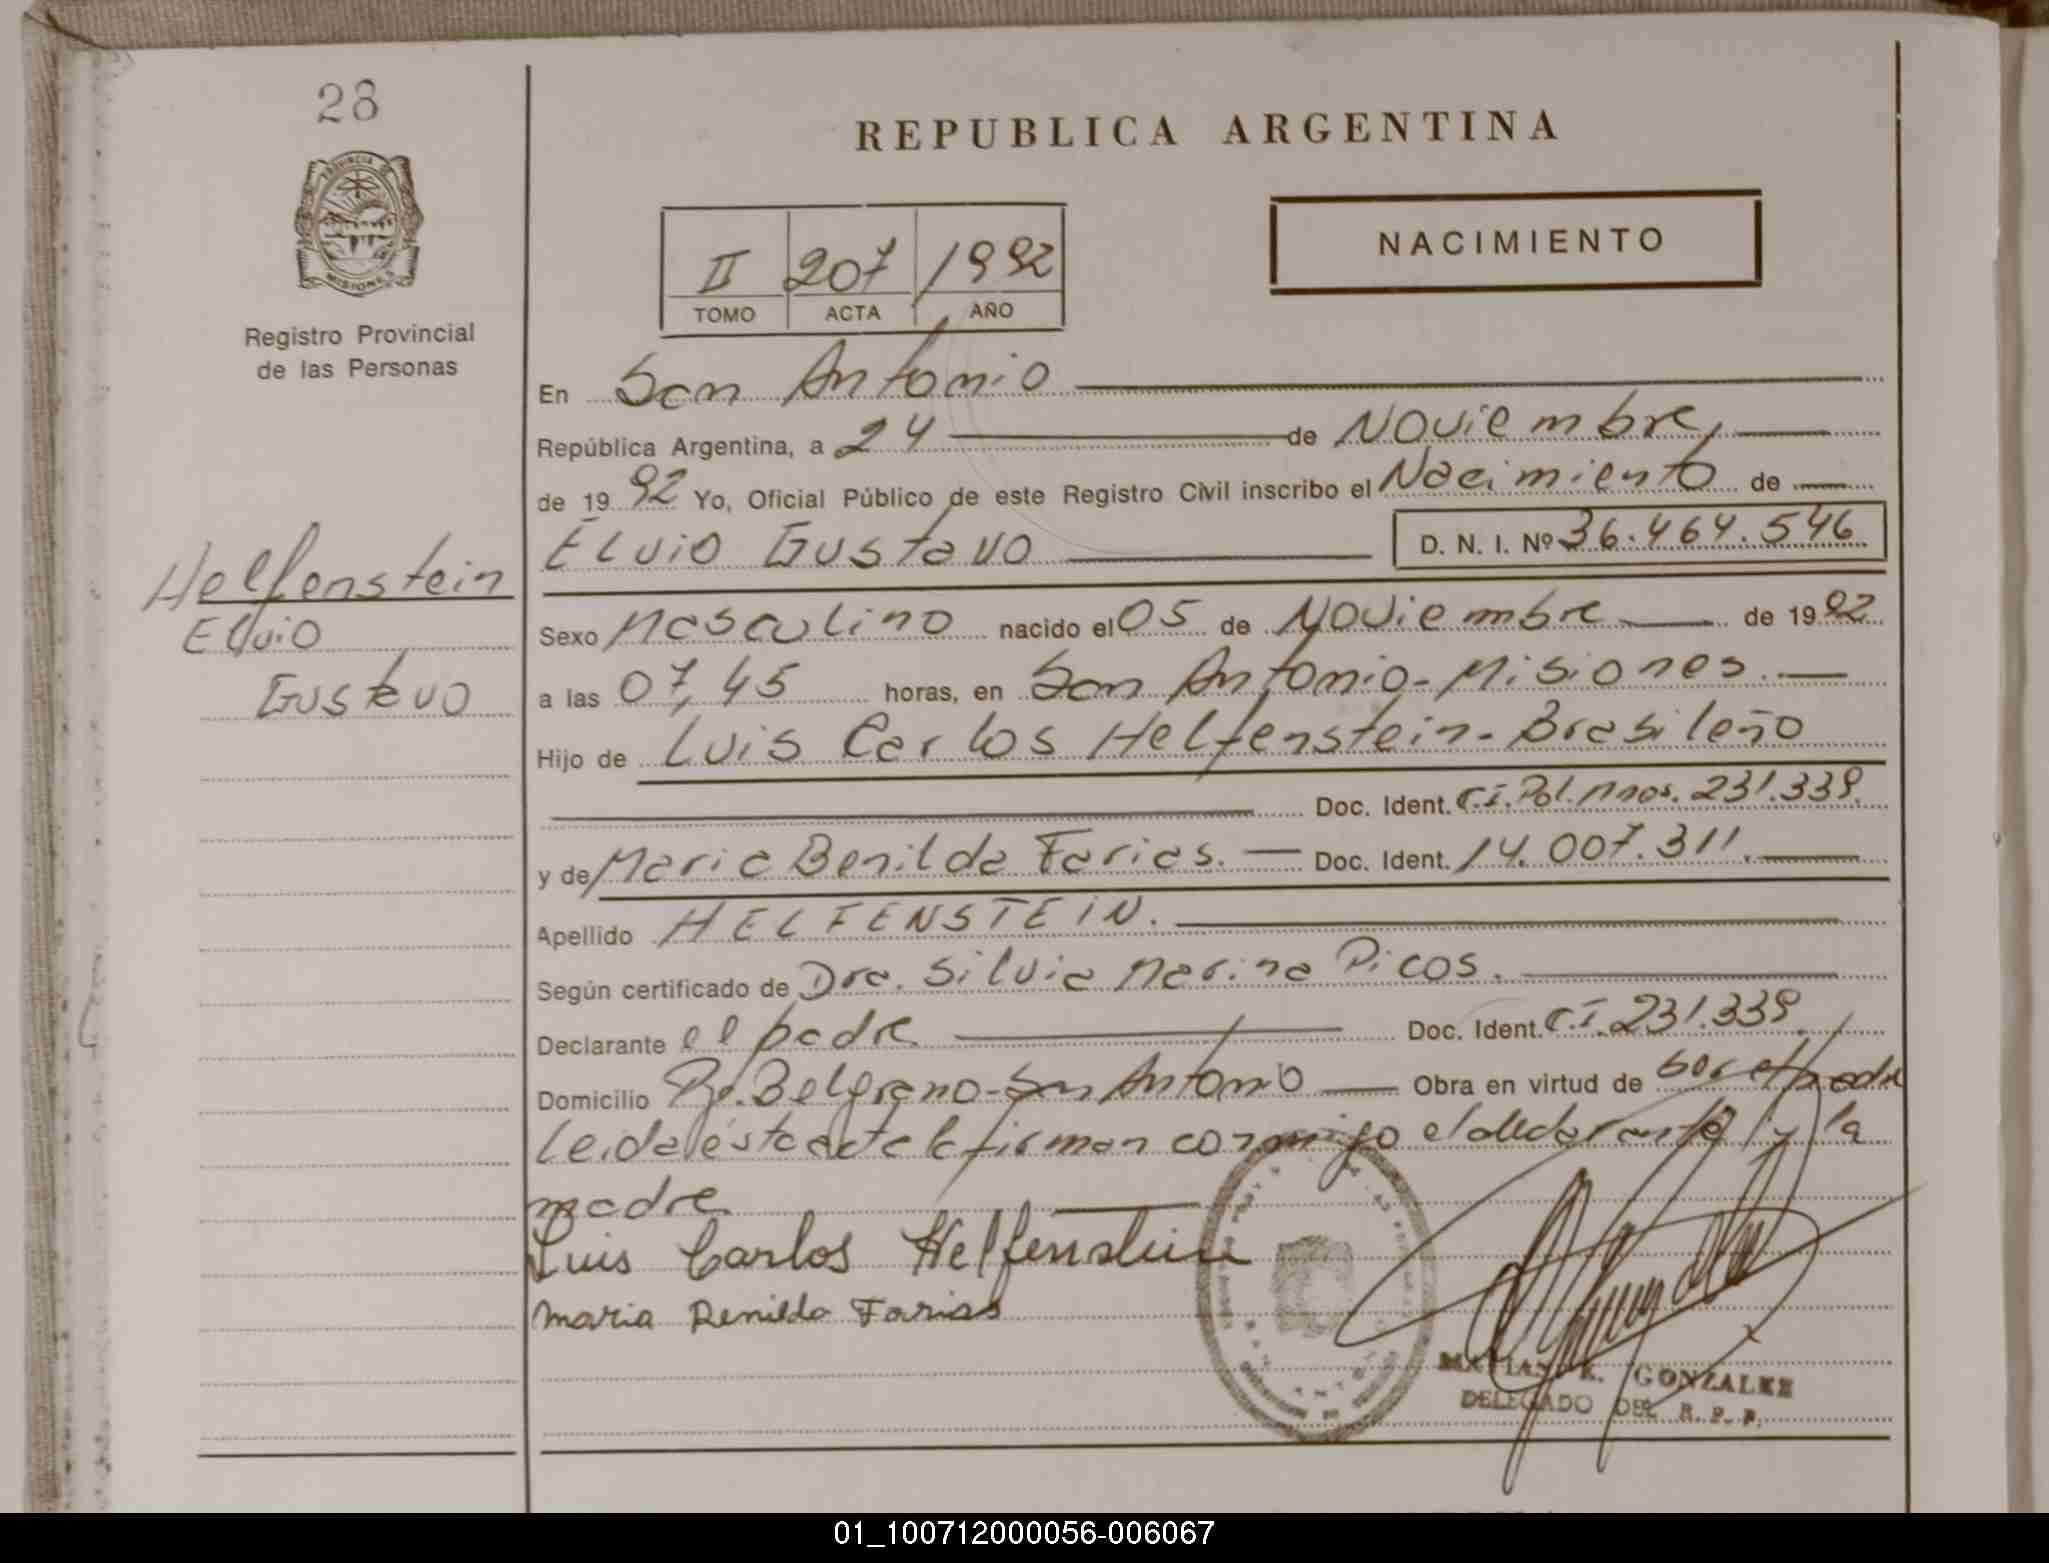 28
REPUBLICA ARGENTINA
PROVINCIA DE
MISIONES
NACIMIENTO
II 207 1992
TOMO ACTA AÑO
Registro Provincial
de las Personas
En San Antonio
República Argentina, a 24 de Noviembre,
de 1992 Yo, Oficial Público de este Registro Civil inscribo el Nacimiento de
Elvio Gustavo D. N. I. Nº 36.464.546
Helfenstein
Elvio
Gustavo
Sexo Masculino nacido el 05 de Noviembre de 1992
a las 07,45 horas, en San Antonio-Misiones.
Hijo de Luis Carlos Helfenstein-Brasileño
Doc. Ident. C.I. Pol. Mnes. 231.339.
y de Maria Benilda Farias. Doc. Ident. 14.007.311.
Apellido HELFENSTEIN.
Según certificado de Dra. Silvia Marina Picos.
Declarante el padre Doc. Ident. C.I. 231.339.
Domicilio Pje. Belgrano-San Antonio Obra en virtud de ser el padre
Leida ésta acta la firman conmigo el declarante y la
madre
Luis Carlos Helfenstein
Maria Benilda Farias
MATIAS R. GONZALEZ
DELEGADO DEL R. P. P.
01_100712000056-006067